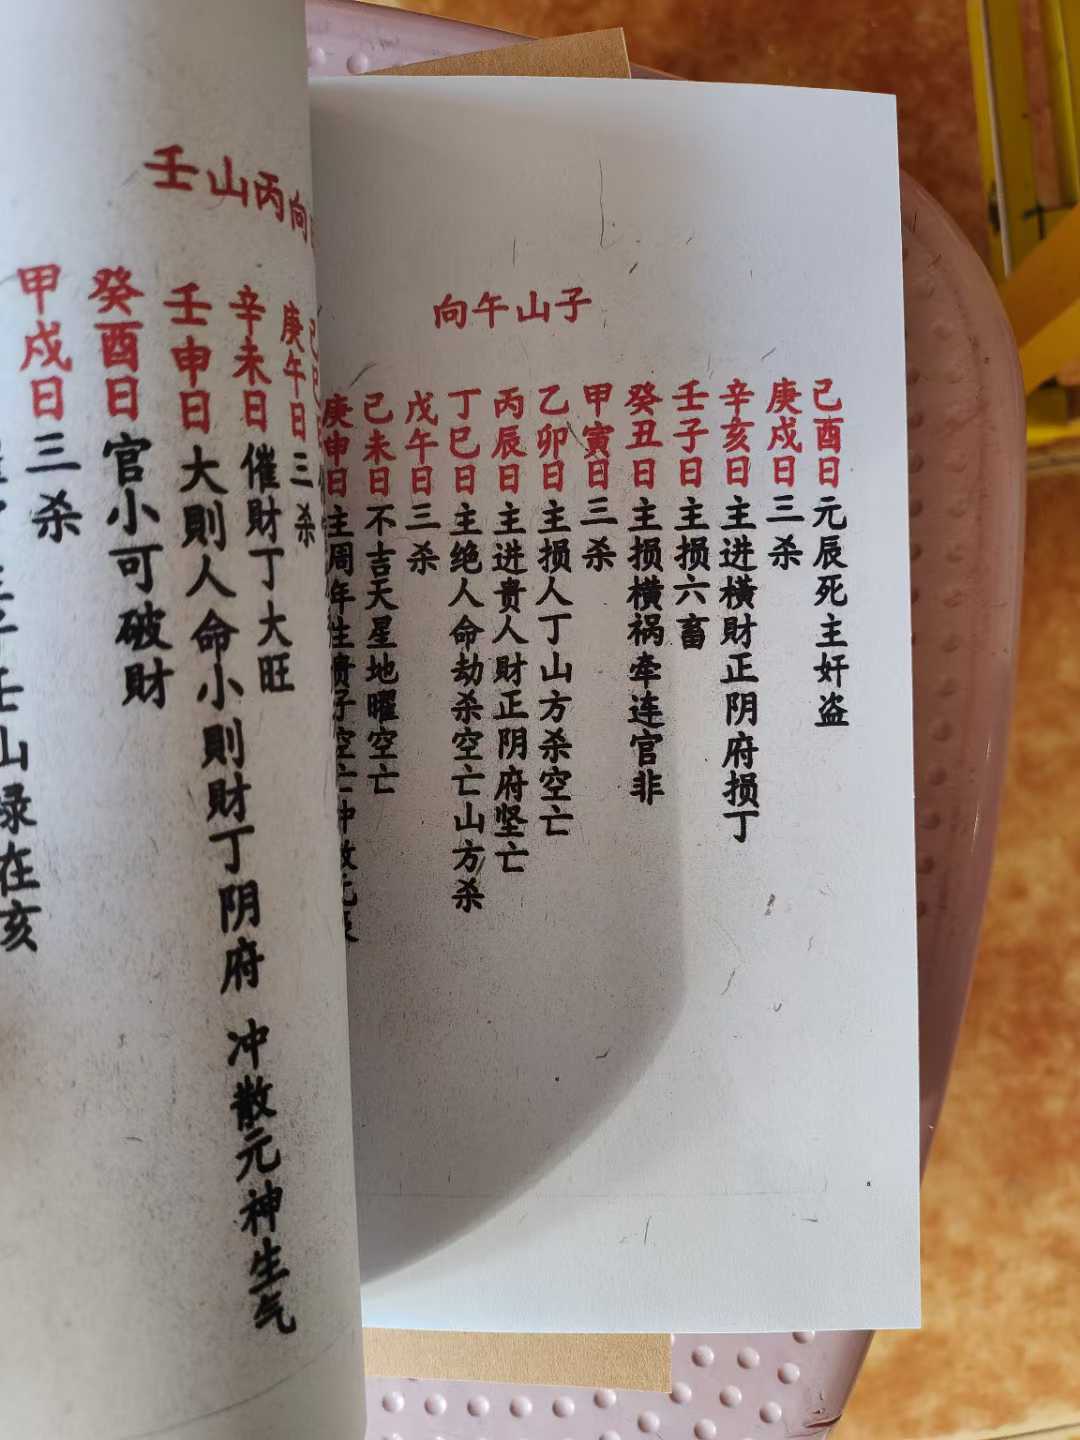 子山午向
己酉日元辰死主奸盗
庚戍日三杀
辛亥日主进横財正阴府损丁
壬子日主损六畜
癸丑日主损横祸牵连官非
甲寅日三杀
乙卯日主损人丁山方杀空亡
丙辰日主进贵人財正阴府坚亡
丁巳日主绝人命劫杀空亡山方杀
戊午日三杀
己未日不吉天星地曜空亡
庚申日主周年生贵子空亡冲散元辰
壬山丙向
庚午日三杀
辛未日催財丁大旺
壬申日大則人命小則財丁阴府 冲散元神生气
癸酉日官小可破財
甲戍日三杀
壬山禄在亥